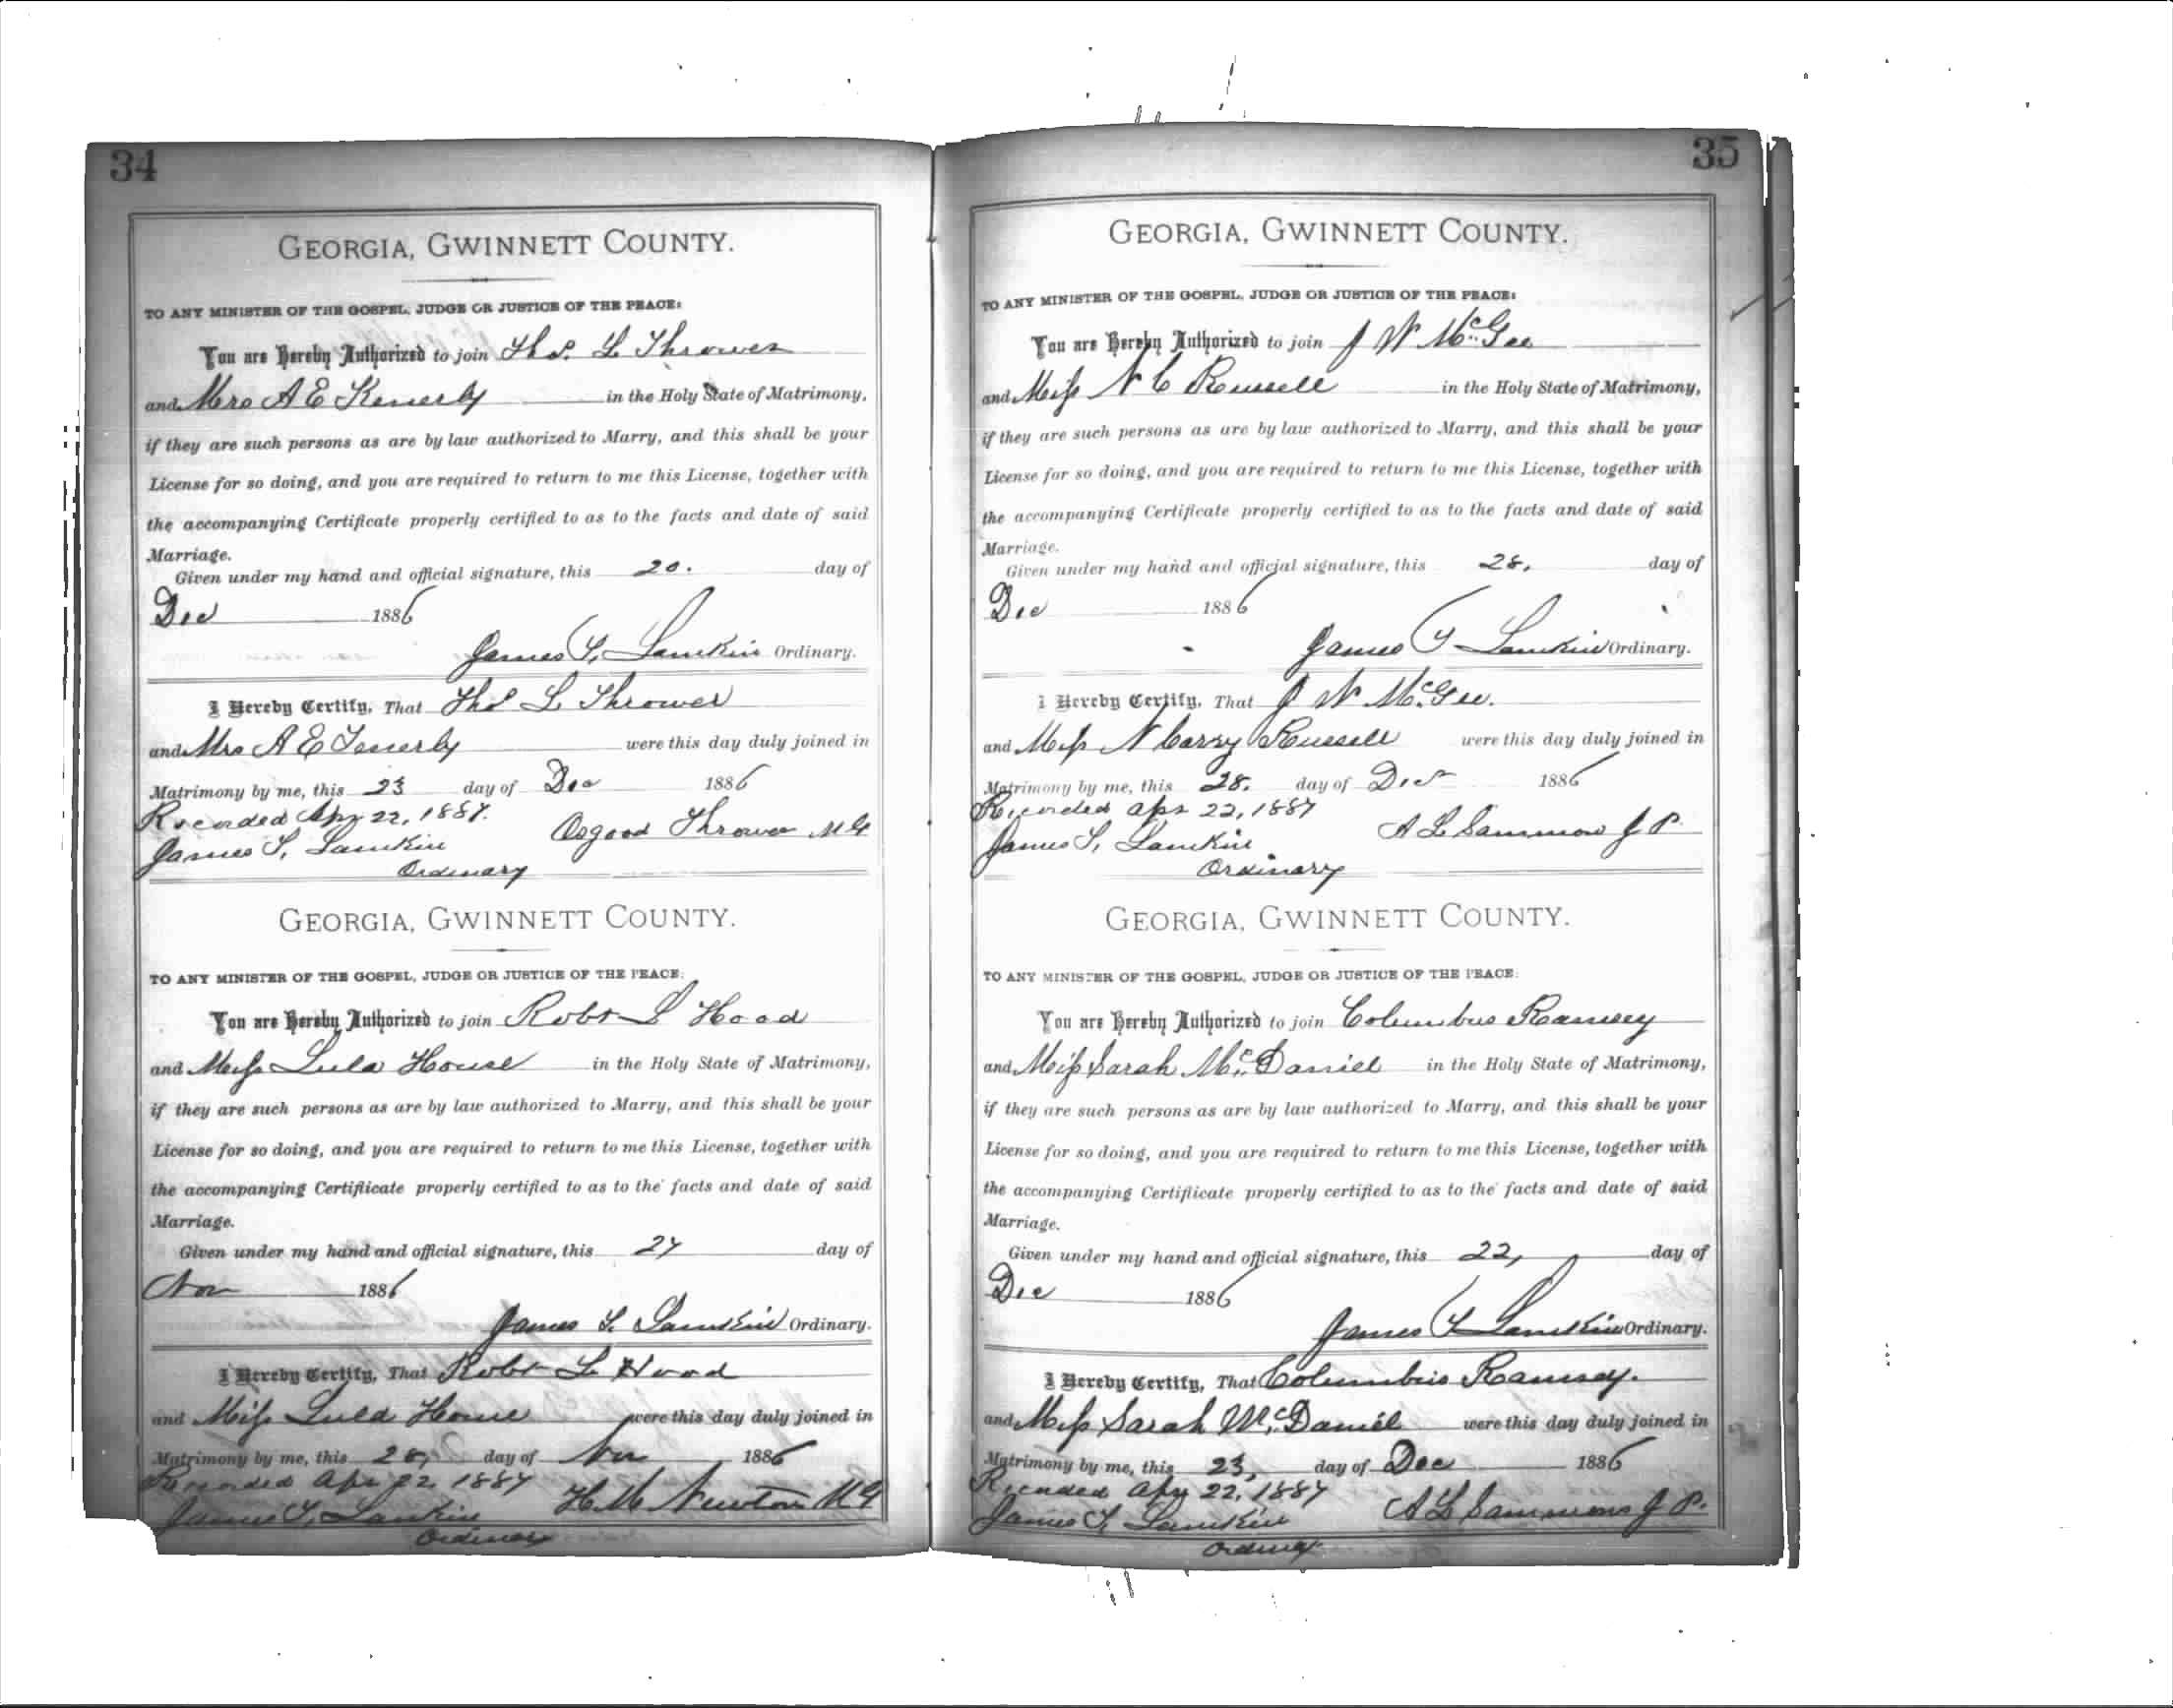 34
GEORGIA, GWINNETT COUNTY.
TO ANY MINISTER OF THE GOSPEL, JUDGE OR JUSTICE OF THE PEACE:
You are Hereby Authorized to join Thos. L Thrower
and Mrs A E Kenerly in the Holy State of Matrimony,
if they are such persons as are by law authorized to Marry, and this shall be your
License for so doing, and you are required to return to me this License, together with
the accompanying Certificate properly certified to as to the facts and date of said
Marriage.
Given under my hand and official signature, this 20. day of
Dec 1886
James T. Lamkin Ordinary.
I Hereby Certify, That Thos L Thrower
and Mrs A E were this day duly joined in
Matrimony by me, this 23 day of Dec 1886
Recorded Apr 22, 1887.
Osgood Thrower M G
James T. Lamkin
Ordinary
GEORGIA, GWINNETT COUNTY.
TO ANY MINISTER OF THE GOSPEL, JUDGE OR JUSTICE OF THE PEACE:
You are Hereby Authorized to join Robt L Hood
and Miss Lula House in the Holy State of Matrimony,
if they are such persons as are by law authorized to Marry, and this shall be your
License for so doing, and you are required to return to me this License, together with
the accompanying Certificate properly certified to as to the facts and date of said
Marriage.
Given under my hand and official signature, this 27 day of
Nov 1886
James T. Lamkin Ordinary.
I Hereby Certify, That Robt L Hood
and Miss Lula House were this day duly joined in
Matrimony by me, this 28, day of Nov 1886
Recorded Apr 22 1887
H. M. Newton M G
James T. Lamkin
Ordinary
35
GEORGIA, GWINNETT COUNTY.
TO ANY MINISTER OF THE GOSPEL, JUDGE OR JUSTICE OF THE PEACE:
You are Hereby Authorized to join J W McGee
and Miss N C Russell in the Holy State of Matrimony,
if they are such persons as are by law authorized to Marry, and this shall be your
License for so doing, and you are required to return to me this License, together with
the accompanying Certificate properly certified to as to the facts and date of said
Marriage.
Given under my hand and official signature, this 28, day of
Dec 1886
James T Lamkin Ordinary.
I Hereby Certify, That J W McGee.
and Miss N Carry Russell were this day duly joined in
Matrimony by me, this 28. day of Dec 1886
Recorded Apr 22, 1887
A L Sammons J P
James T, Lamkin
Ordinary
GEORGIA, GWINNETT COUNTY.
TO ANY MINISTER OF THE GOSPEL, JUDGE OR JUSTICE OF THE PEACE:
You are Hereby Authorized to join Columbus Ramsey
and Miss Sarah McDaniel in the Holy State of Matrimony,
if they are such persons as are by law authorized to Marry, and this shall be your
License for so doing, and you are required to return to me this License, together with
the accompanying Certificate properly certified to as to the facts and date of said
Marriage.
Given under my hand and official signature, this 22, day of
Dec 1886
James T Lamkin Ordinary.
I Hereby Certify, That Columbus Ramsey.
and Miss Sarah McDaniel were this day duly joined in
Matrimony by me, this 23, day of Dec 1886
Recorded Apr 22, 1887
A L Sammons J P.
James T, Lamkin
Ordinary